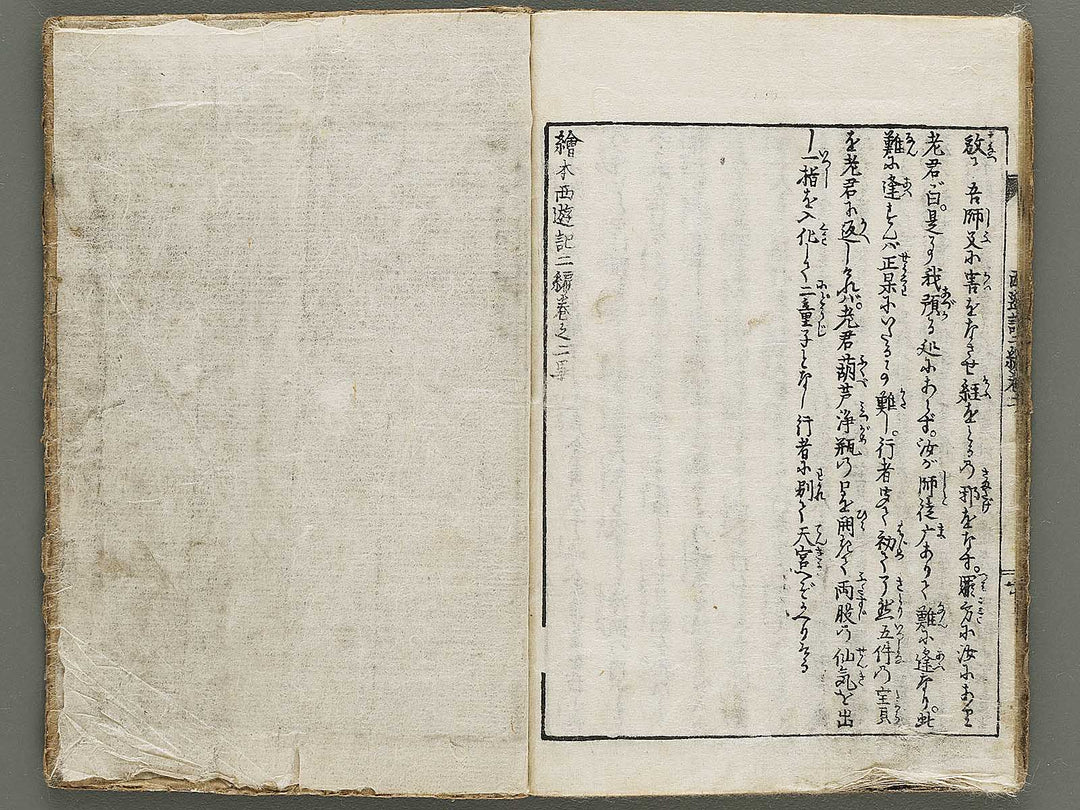 放て吾師父に害をなさせ経をとるの邪をなす。罪方に汝にあり
老君曰。是わが我預る処にあらず。汝が師徒广ありて難に逢なり。此
難に逢ずんバ正果にいたるの事難し。行者聞て初て了然五件の宝貝
を老君に返しけれバ。老君葫芦浄瓶の口を開きて両股の仙気を出
し一指を入化して二童子となし行者に別て天宮へぞかへりける
繪本西遊記二編巻之二畢
西遊記二編巻二